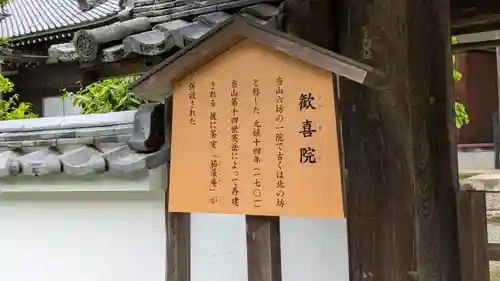 歓喜院
当山六坊の一院で古くは北の坊
と称した 元禄十四年(一七〇一)
当山第十四世英岳によって再建
される 後に茶室「菘藻庵」が
併設された